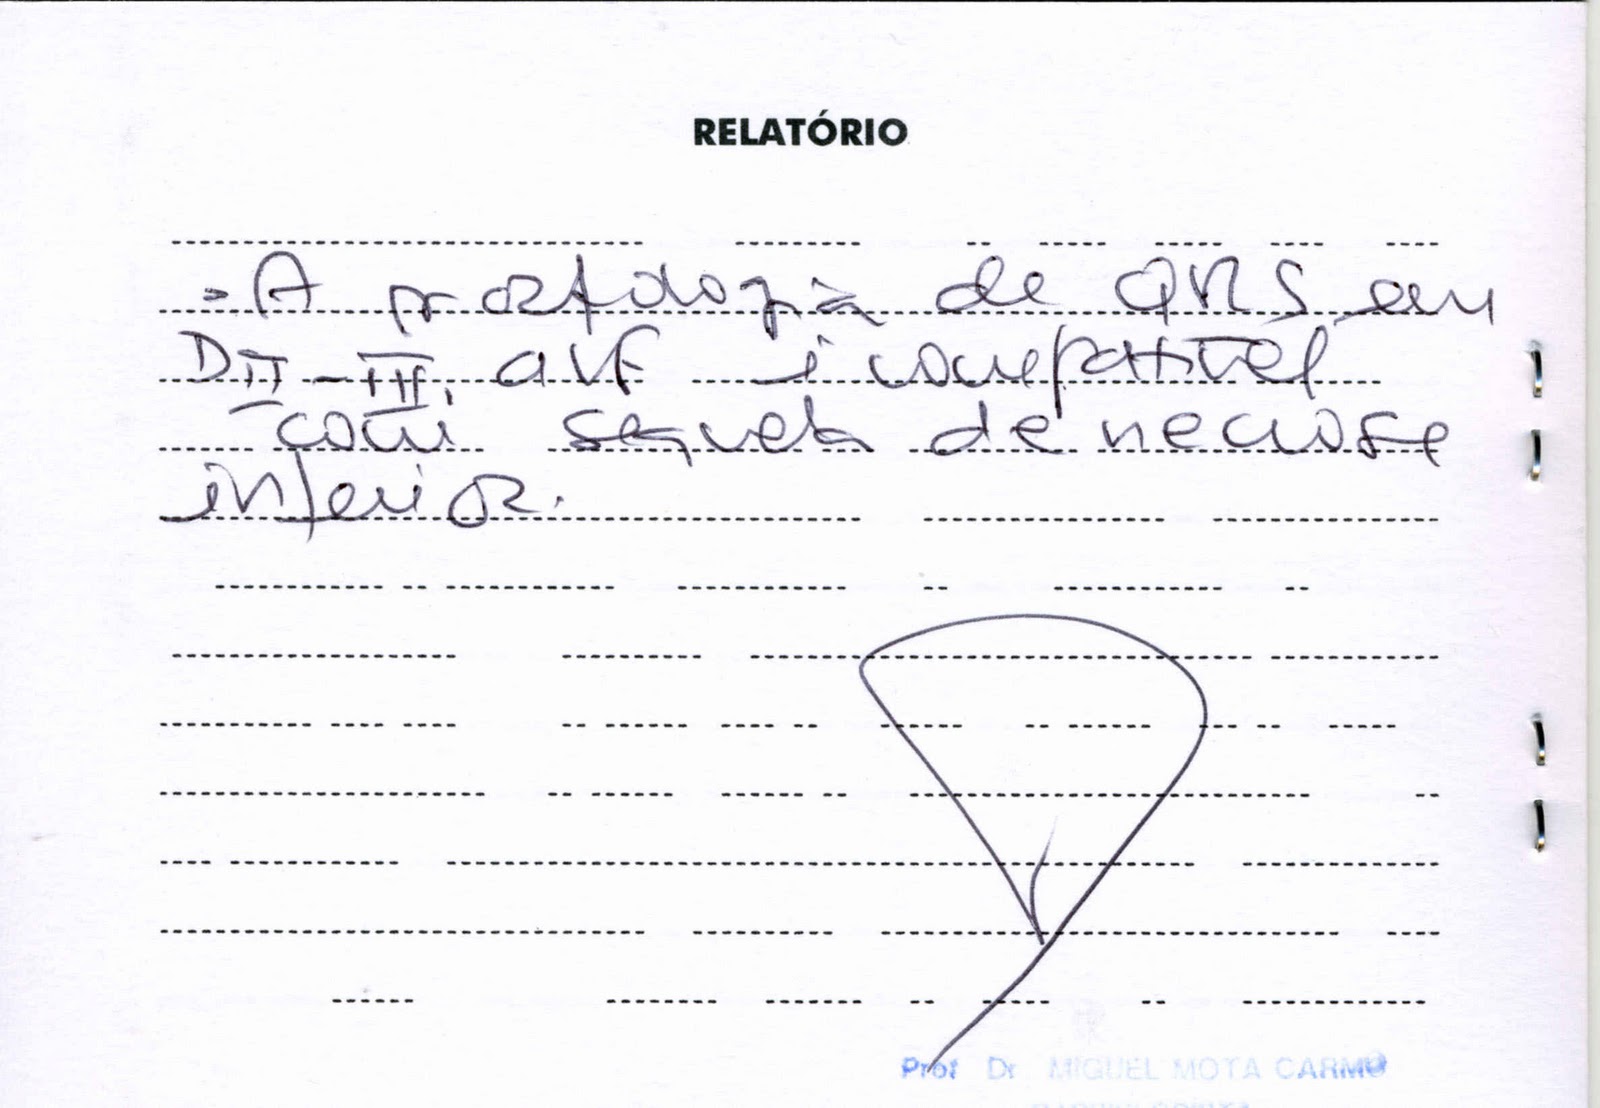 RELATÓRIO
- A morfologia de QRS em
DII - III, aVF é compatível
com sequela de necrose
inferior.
Prof Dr MIGUEL MOTA CARMO